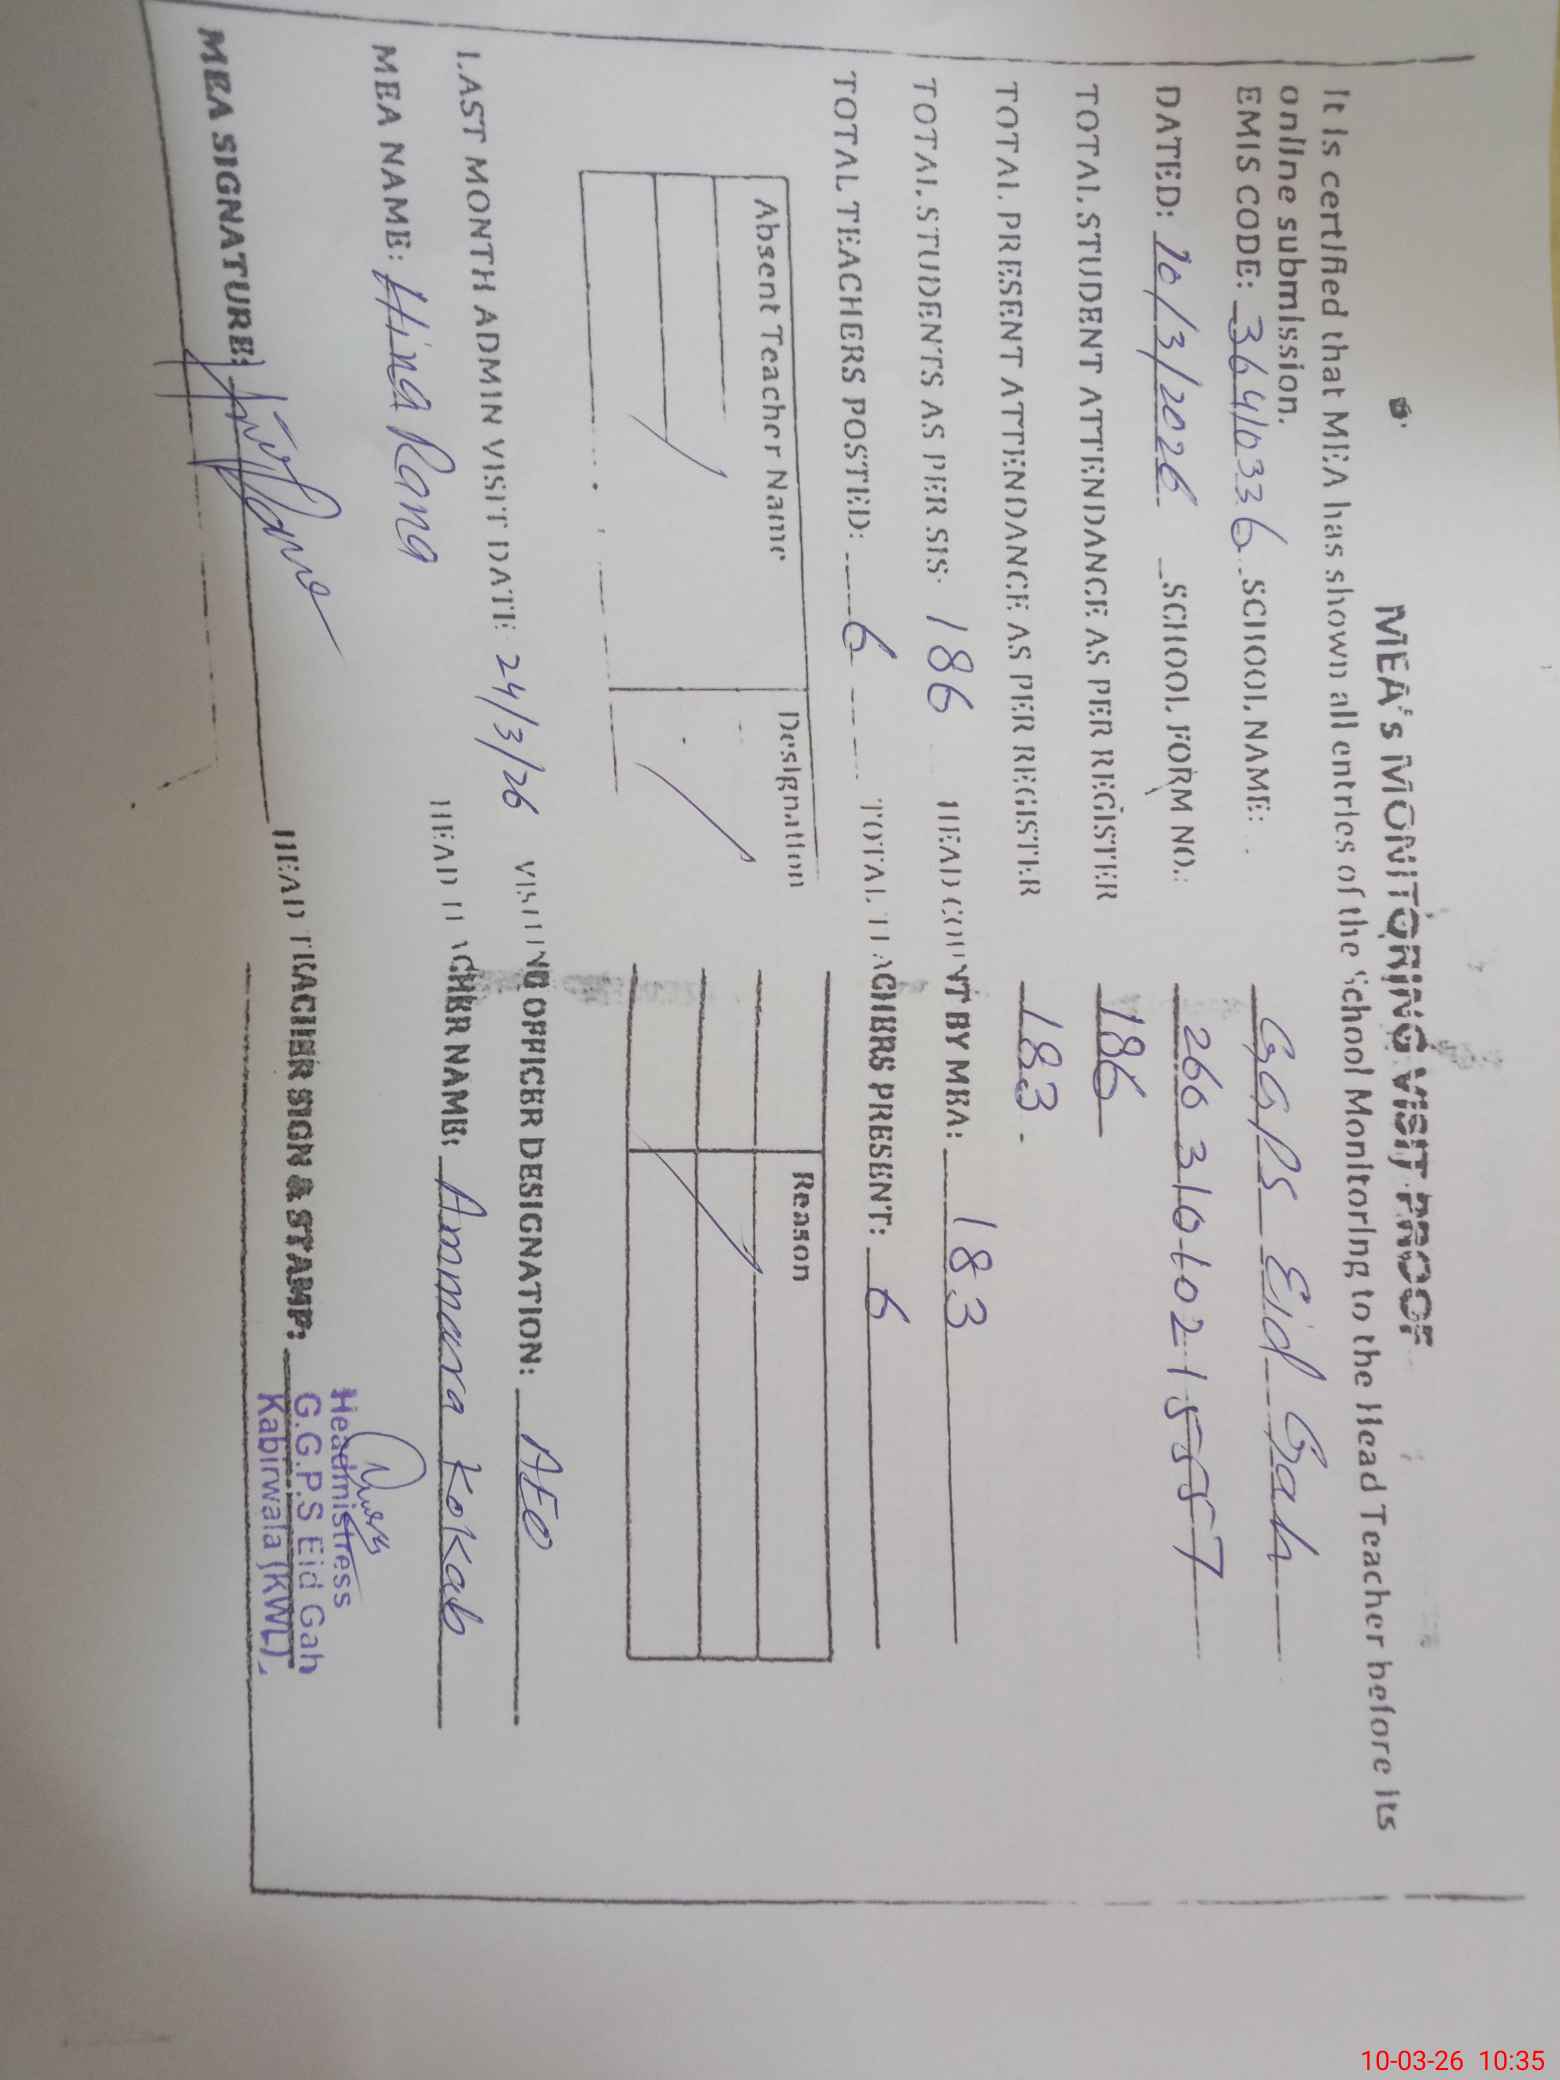 MEA's MONITORING VISIT PROOF
It is certified that MEA has shown all entries of the School Monitoring to the Head Teacher before its
online submission.
EMIS CODE: 36410336 SCHOOL NAME: GGPS Eid Gah
DATED: 10/3/2026 SCHOOL FORM NO.: 26631010215557
TOTAL STUDENT ATTENDANCE AS PER REGISTER 186
TOTAL PRESENT ATTENDANCE AS PER REGISTER 183
TOTAL STUDENTS AS PER SIS: 186 HEAD COUNT BY MEA: 183
TOTAL TEACHERS POSTED: 6 TOTAL TEACHERS PRESENT: 6
Absent Teacher Name Designation Reason
LAST MONTH ADMIN VISIT DATE 24/3/26 VISITING OFFICER DESIGNATION: AEO
MEA NAME: Hina Rana HEAD TEACHER NAME: Ammara Kokab
MEA SIGNATURE: HEAD TEACHER SIGN & STAMP:
Headmistress
G.G.P.S Eid Gah
Kabirwala (KWL)
10-03-26 10:35